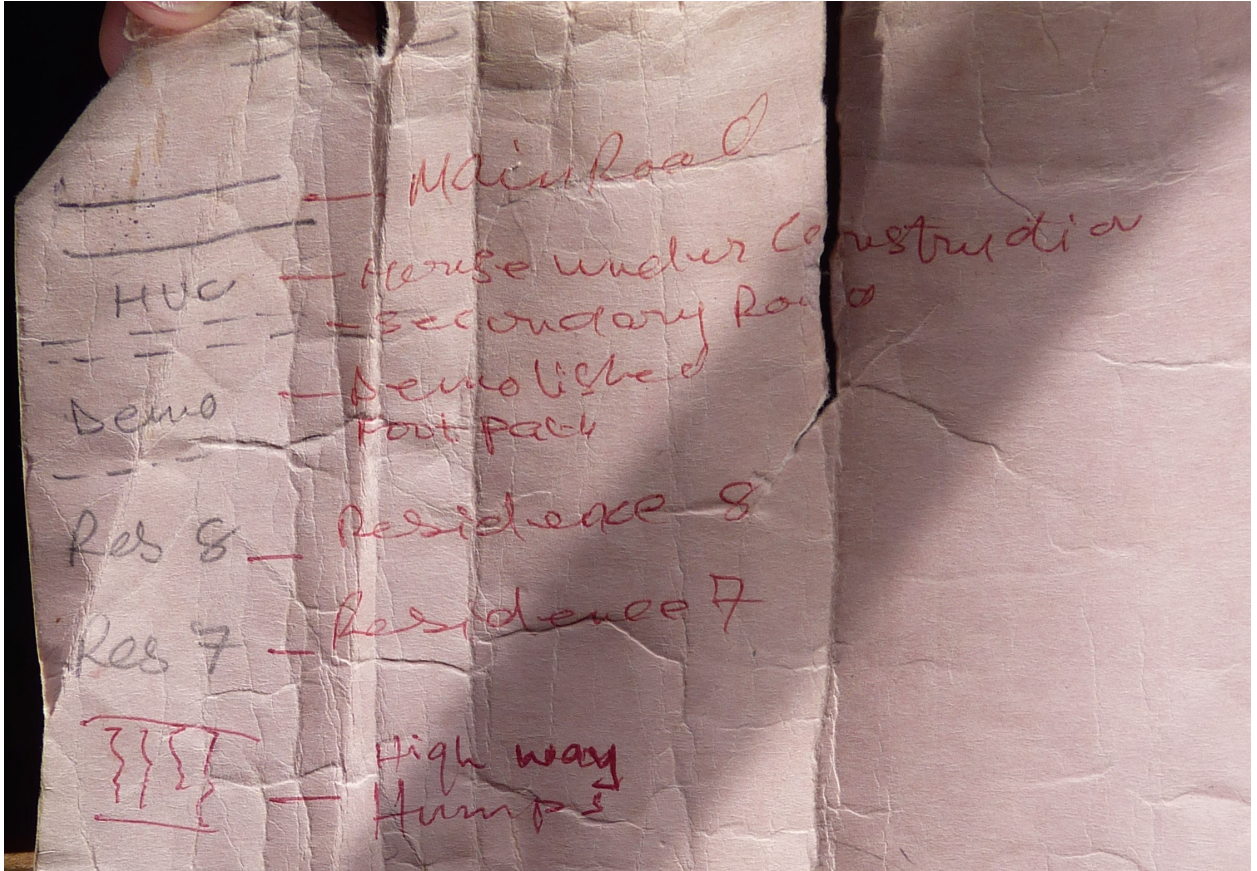 — Main Road
HUC — House under Construction
— Secondary Road
Demo — Demolished
Foot path
Res 8 — Residence 8
Res 7 — Residence 7
High way
— Humps